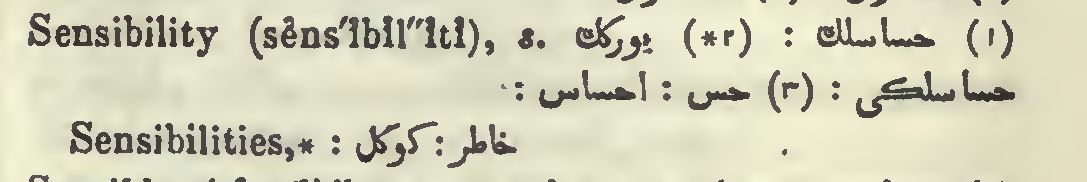 Sensibility (sĕns′ĭbĭl″ĭtĭ), s. (١) حساسلك : (٢*) يورك
حساسلكى : (٣) حس : احساس :
Sensibilities,* : خاطر : كوكل